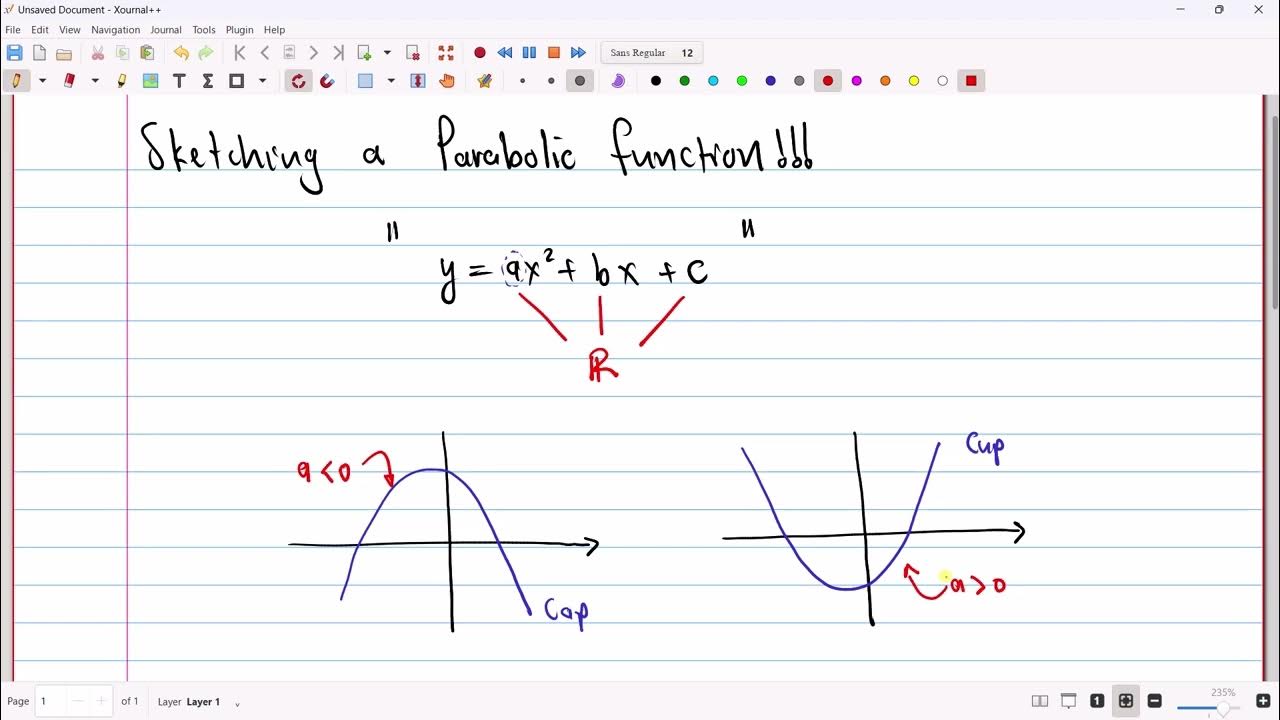 Unsaved Document - Xournal++
File Edit View Navigation Journal Tools Plugin Help
Sans Regular 12
Sketching a Parabolic function!!!
" "
y = ax² + bx + c
ℝ
a < 0
Cup
a > 0
Cap
Page 1 of 1 Layer Layer 1 235%